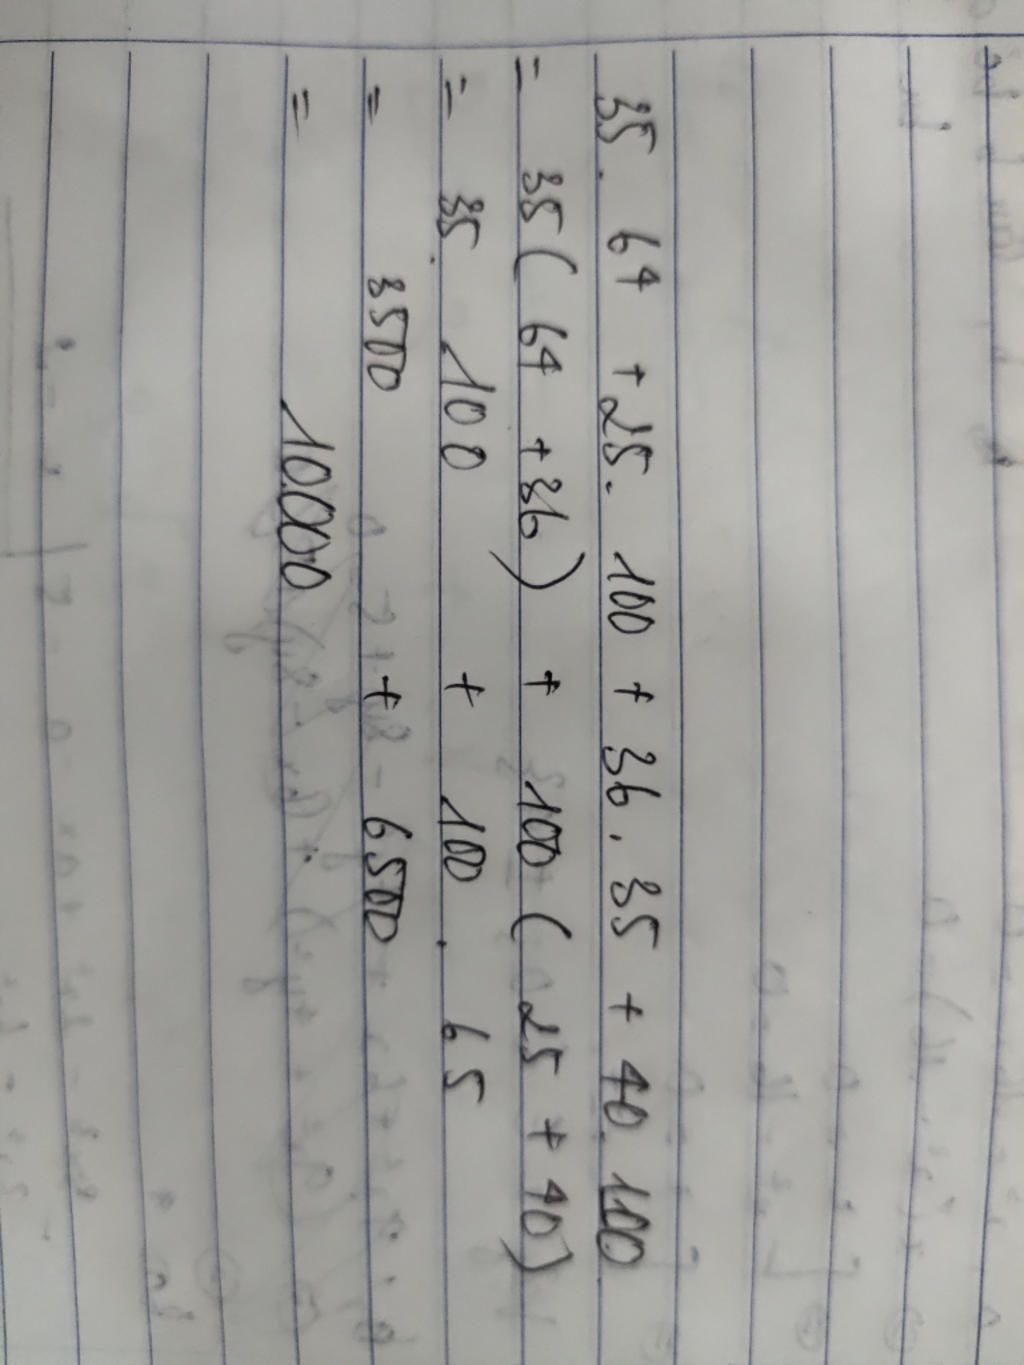 35. 64 + 25. 100 + 36. 35 + 40.100
= 35 ( 64 + 36 ) + 100 ( 25 + 40)
= 35. 100 + 100. 65
= 3500 + 6500
= 10000